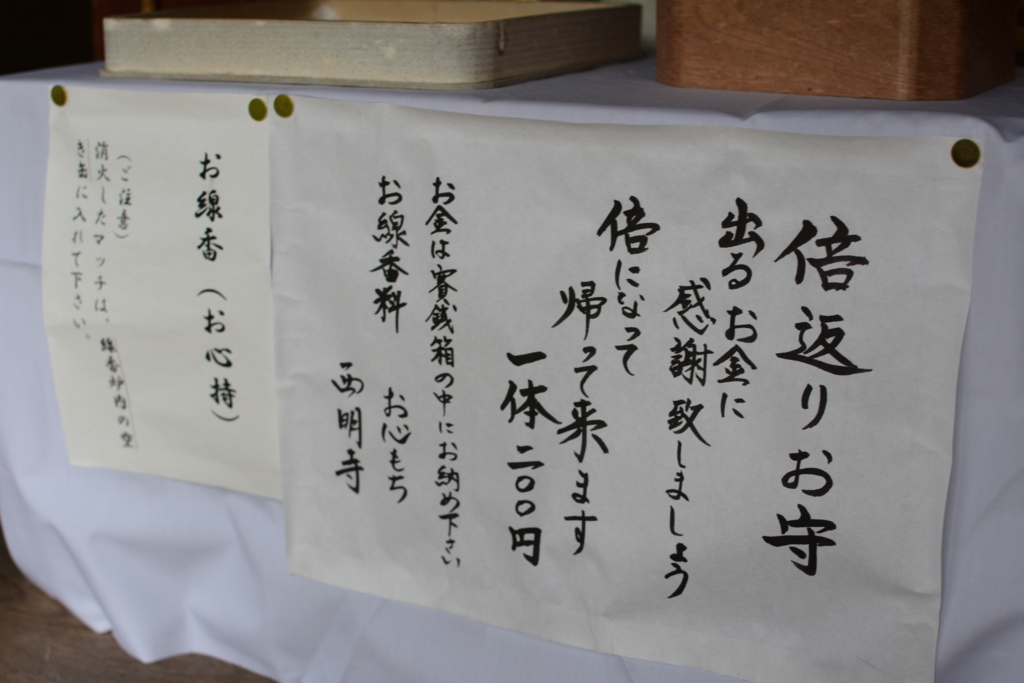 倍返りお守
出るお金に
感謝致しましょう
倍になって
帰って来ます
一体二〇〇円
お金は賽銭箱の中にお納め下さい
お線香料　お心もち
西明寺
お線香（お心持）
（ご注意）
消火したマッチは、線香炉内の空
き缶に入れて下さい。